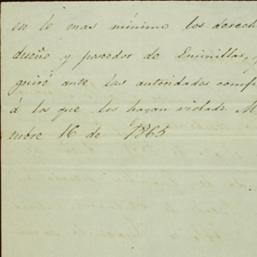 en lo mas mínimo los derech
dueño y poseedor de Eminillas, y
guiré ante las autoridades comp
á los que los hayan violado M
embre 16 de 1865